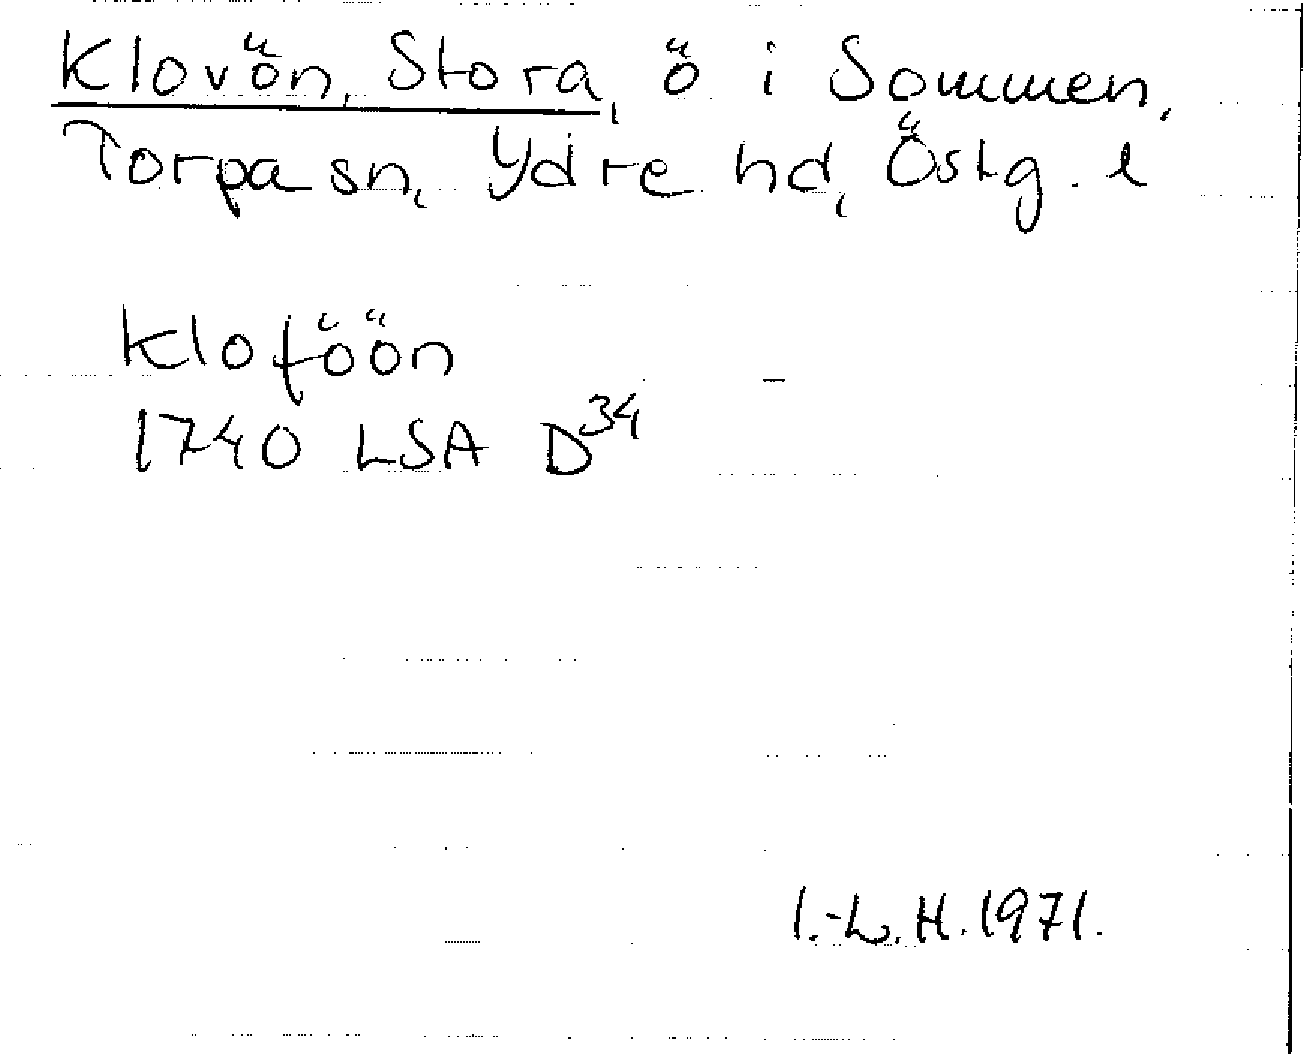 Klovön, Stora, ö i Sommen,
Torpa sn, Ydre hd, Östg. l
Kloföön
1740 LSA D³⁴
I.-L. H. 1971.